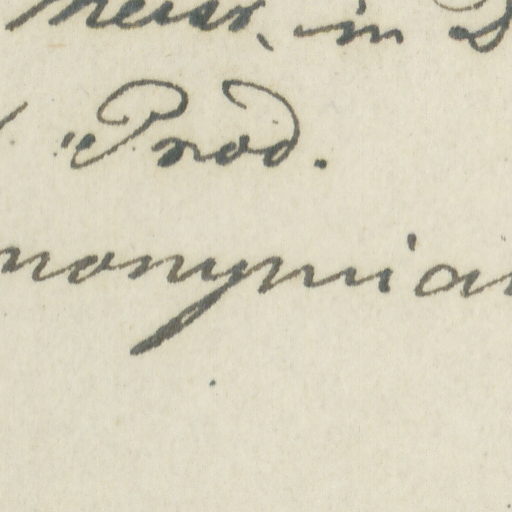 Meisr. in D
Prod.
nonymian